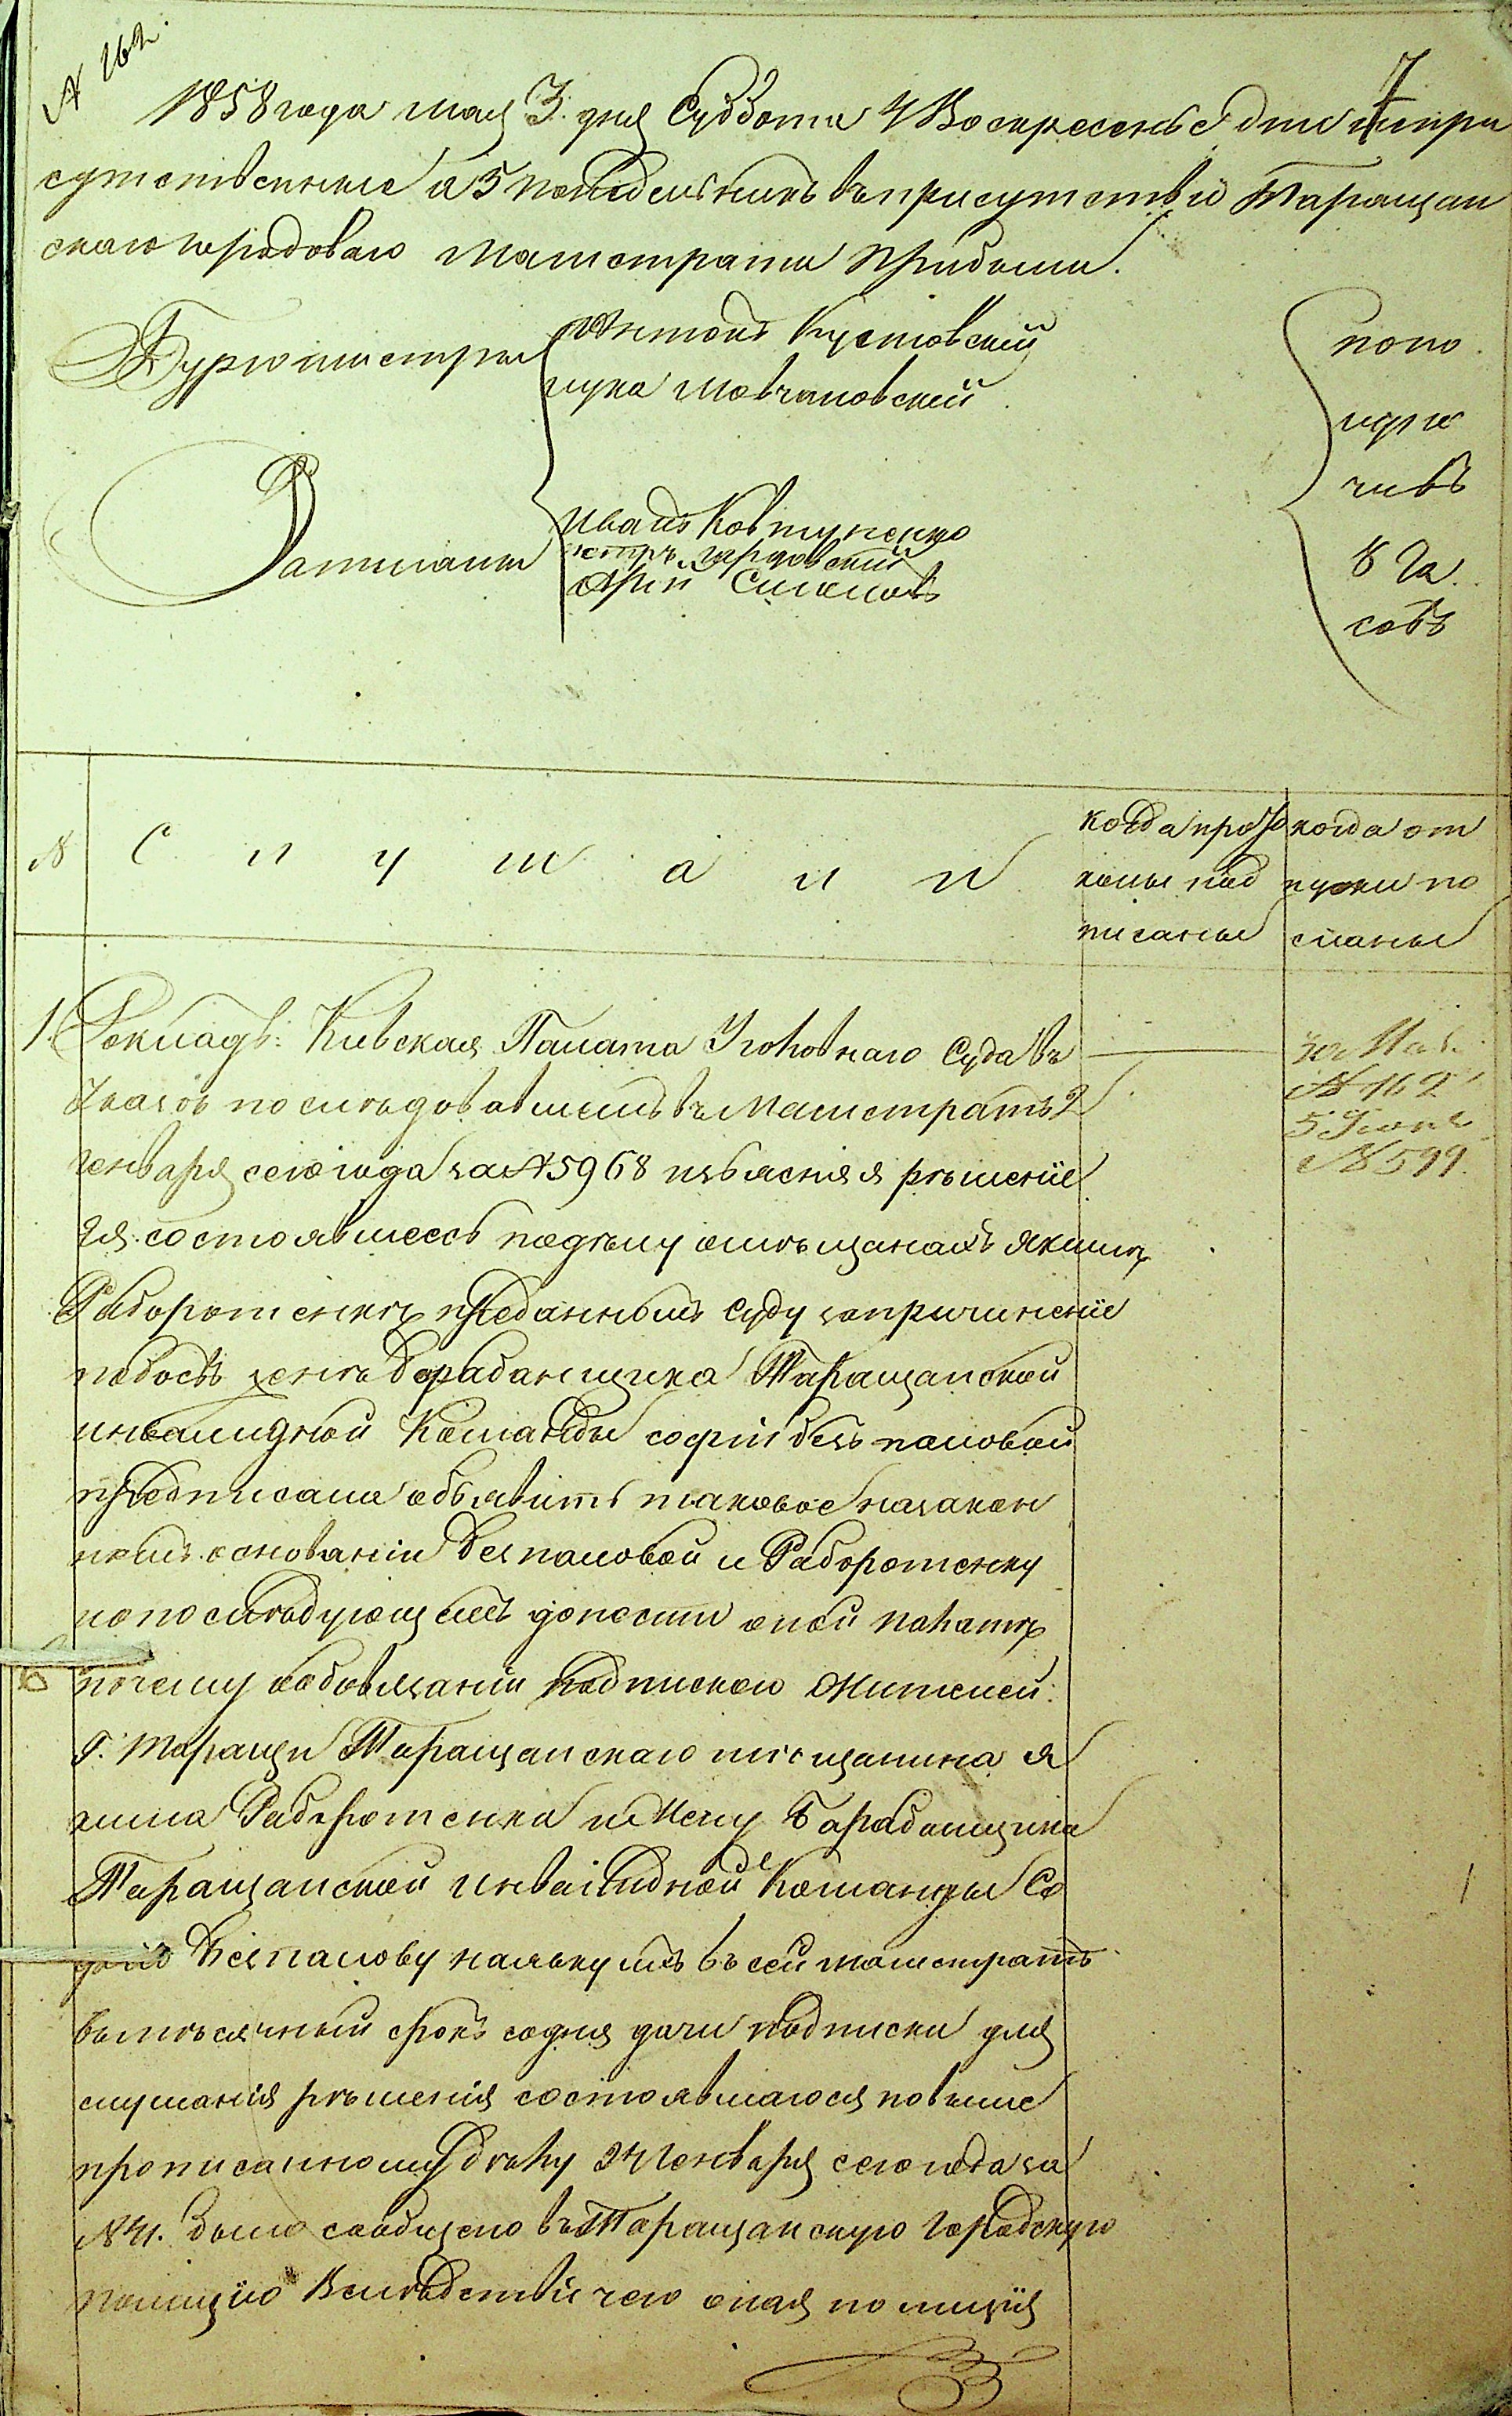 № 162.
7
1858 года мая 3. дня Суббота 4 Воскресенье дни непри
сутственные а 5 понедельникъ въ присутствіи Таращан
скаго городоваго магистрата прибыли.
Бургомистры
Антонъ Кустовскій
Лука Мовчановскій
Ратманы
Иванъ Ковтуненко
Петръ
Юрій Симоновъ
попо
лудю
чивъ
8 ча
совъ
№
С л у ш а л и
когда прото
колы под
писаны
когда от
пуски по
сланы
1. Докладъ: Кіевская Палата Уголовнаго Суда въ
Указѣ послѣдовавшемъ въ Магистратъ 2
генваря сего года за № 5968 изъясняя рѣшеніе
ея состоявшеесь по дѣлу о мѣщанахъ Якимѣ
Раборотенкѣ преданнымъ суду за причиненіе
побоевъ женѣ барабанщика Таращанской
инвалидной Команды Софіи Безпаловой
предписала объявить таковое на закон
номъ основаніи Безпаловой и Раборотенку
и о послѣдующемъ донести оной палатѣ
почему о обовязаніи подпискою жителей:
г. Таращи Таращанскаго мѣщанина Я
кима Раборотенка и жену Барабанщика
Таращанской инвалидной Команды Со
фію Безпалову къ явкѣ въ сей магистратъ
въ мѣсячный срокъ со дня дачи подписки для
слушанія рѣшенія состоявшагося по выше
прописанному дѣлу 24 Генваря сего года за
№ 41. было сообщено въ Таращанскую Городскую
полицію Вслѣдствіи чего оная полиція
№ 162
5 Іюня
№ 599.